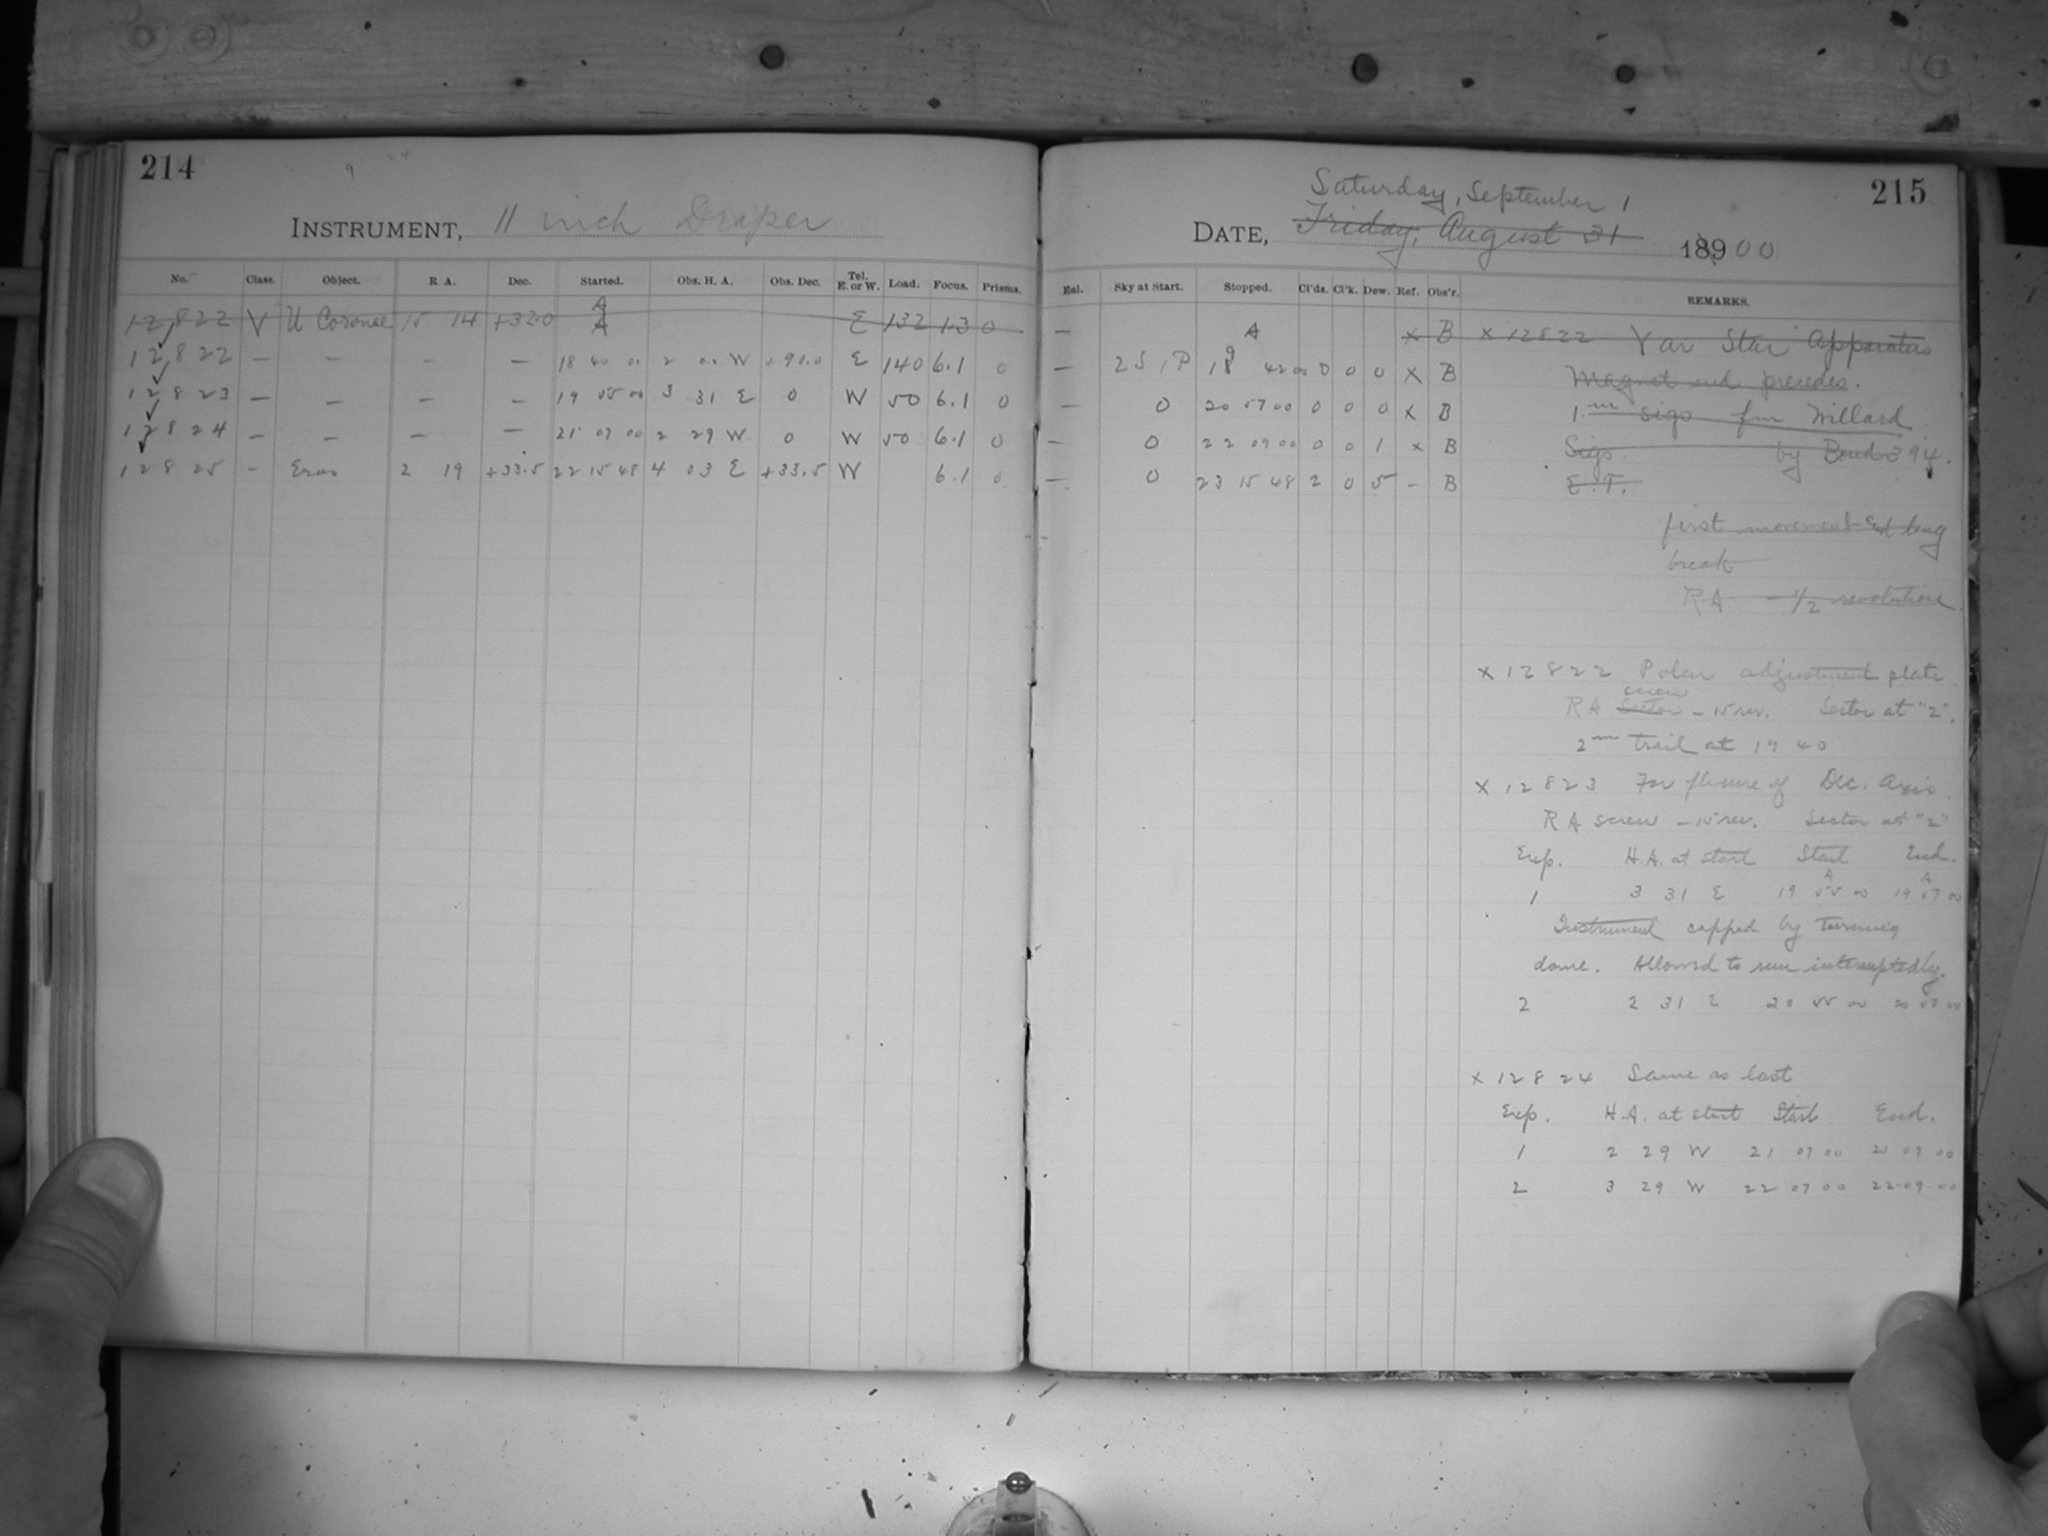 214
INSTRUMENT, 11 inch Draper
No. Class. Object. R. A. Dec. Started. Obs. H. A. Obs. Dec. Tel. E. or W. Load. Focus. Prisms.
12822 V U Coronae 15 14 +32.0 A E 132 1.3 0
12822 — — — — 18 40 00 2 00 W +90.0 E 140 6.1 0
12823 — — — — 19 55 00 3 31 E 0 W 50 6.1 0
12824 — — — — 21 07 00 2 29 W 0 W 50 6.1 0
12825 - Eros 2 19 +33.5 22 15 48 4 03 E +33.5 W 6.1 0
215
Saturday, September 1
DATE, Friday, August 31 189 00
Eal. Sky at Start. Stopped. Cl'ds. Cl'k. Dew. Ref. Obs'r. REMARKS.
— A x B x 12822 Var Star Apparatus
— 2S, P 18 42 00 0 0 0 x B Magnet end precedes.
— 0 20 57 00 0 0 0 x B 1m sigs fm Willard
— 0 22 09 00 0 0 1 x B Sigs. by Bond 394.
— 0 23 15 48 2 0 5 - B E.T.
first movement End long
break
RA - 1/2 revolution.
x 12822 Polar adjustment plate
screw
RA Sector - 15 rev. Sector at "2".
2m trail at 19 40
x 12823 For flexure of Dec. Axis.
RA screw - 15 rev. Sector at "2"
Exp. H.A. at start Start End.
1 3 31 E 19 55 00 19 57 00
Instrument capped by turning
dome. Allowed to run interruptedly.
2 2 31 E 20 55 00 20 57 00
x 12824 Same as last
Exp. H.A. at start Start End.
1 2 29 W 21 07 00 21 09 00
2 3 29 W 22 07 00 22 09 00